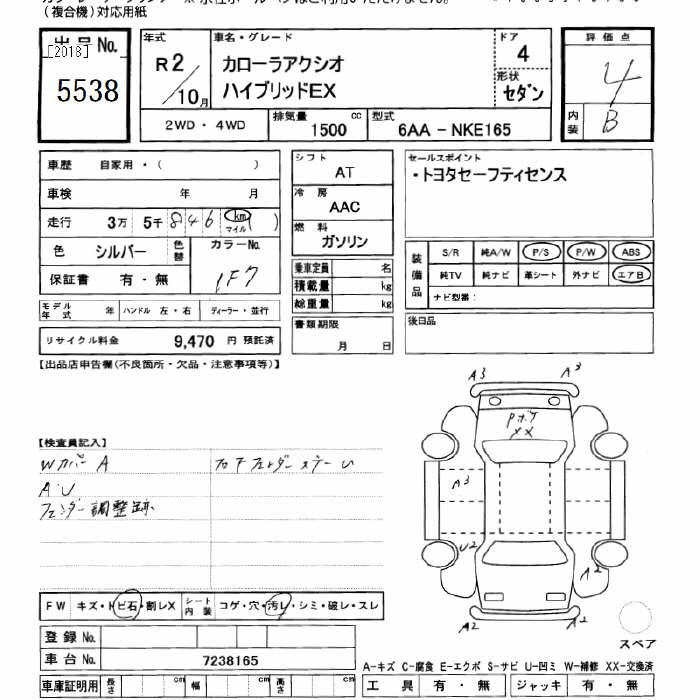 (複合機)対応用紙
出品No.
[2018]
5538
年式
R2/10月
車名・グレード
カローラアクシオ
ハイブリッドEX
ドア
4
形状
セダン
評価点
4
内装
B
2WD・4WD
排気量 1500 cc
型式 6AA-NKE165
車歴 自家用・( )
車検 年 月
走行 3万 5千 846 (km マイル)
色 シルバー
色替
カラーNo.
1F7
保証書 有・無
シフト
AT
冷房
AAC
燃料
ガソリン
乗車定員 名
積載量 kg
総重量 kg
書類期限
月 日
セールスポイント
・トヨタセーフティセンス
装備品
S/R 純A/W P/S P/W ABS
純TV 純ナビ 革シート 外ナビ エアB
ナビ型番:
後日品
モデル年式 年 ハンドル 左・右 ディーラー・並行
リサイクル料金 9,470 円 預託済
【出品店申告欄(不良箇所・欠品・注意事項等)】
【検査員記入】
Wカバー A
A・U
フェンダー調整跡
A3 A3
Pボケ
XX
A3
U2
A2
A2 A2
スペア
FW キズ・トビ石・割レX
シート内装 コゲ・穴・汚レ・シミ・破レ・スレ
登録No.
車台No. 7238165
車庫証明用 長さ cm 幅 cm 高さ cm
A-キズ C-腐食 E-エクボ S-サビ U-凹ミ W-補修 XX-交換済
工具 有・無 ジャッキ 有・無